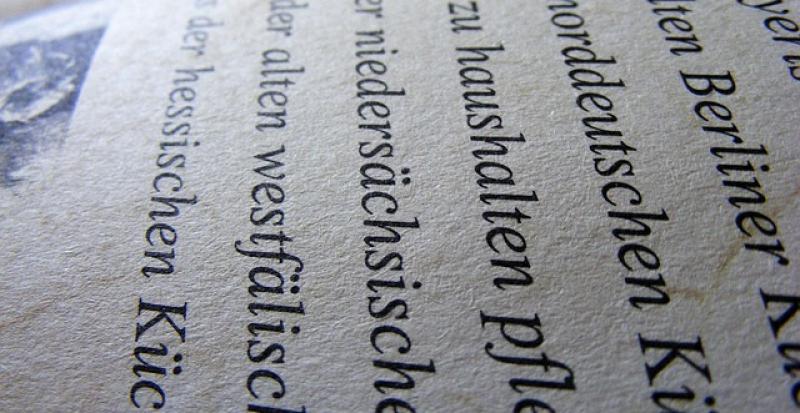 lten Berliner Kü
norddeutschen Kü
zu haushalten pfle
er niedersächsische
der alten westfälisch
s der hessischen Küc